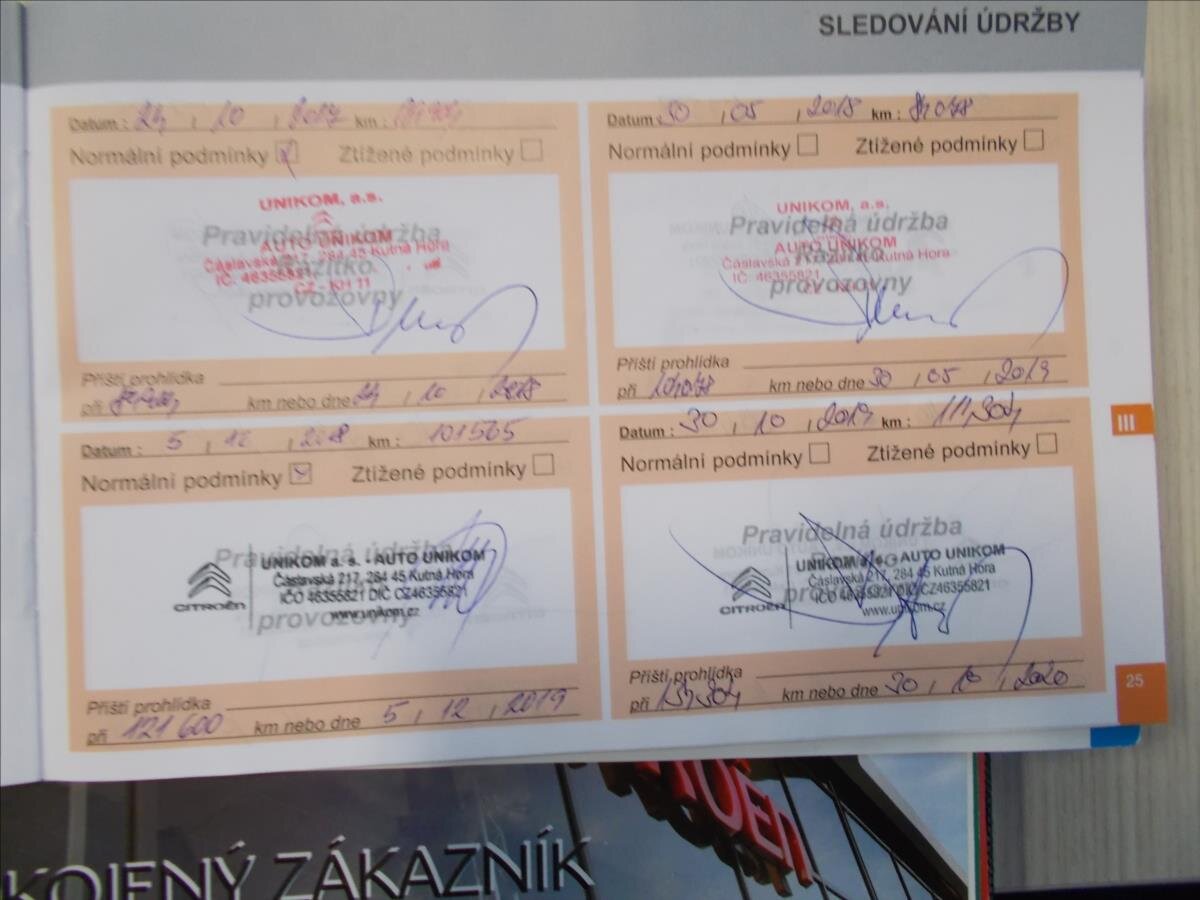 SLEDOVÁNÍ ÚDRŽBY
Datum : 24 , 10 , 2017 km :
Normální podmínky Ztížené podmínky
UNIKOM, a.s.
Pravidelná údržba
AUTO UNIKOM
Čáslavská 217, 284 45 Kutná Hora
Razítko
IČ: 46355821
CZ - KH 11
provozovny
Příští prohlídka
při km nebo dne 24 , 10 , 2018
Datum : 30 , 05 , 2018 km :
Normální podmínky Ztížené podmínky
UNIKOM, a.s.
Pravidelná údržba
AUTO UNIKOM
Razítko
Čáslavská Kutná Hora
IČ: 46355821
provozovny
Příští prohlídka
při km nebo dne 30 , 05 , 2019
Datum : 5 , 12 , 2018 km : 101565
Normální podmínky Ztížené podmínky
Pravidelná údržba
UNIKOM a. s. - AUTO UNIKOM
Čáslavská 217, 284 45 Kutná Hora
IČO 46355821 DIČ CZ46355821
www.unikom.cz
CITROËN
provozovny
Příští prohlídka
při 121 600 km nebo dne 5 , 12 , 2019
Datum : 30 , 10 , 2019 km :
Normální podmínky Ztížené podmínky
Pravidelná údržba
UNIKOM a. s. - AUTO UNIKOM
Čáslavská 217, 284 45 Kutná Hora
IČO 46355821 DIČ CZ46355821
www.unikom.cz
CITROËN
provozovny
Příští prohlídka
při km nebo dne 30 , 10 , 2020
III
25
KOJENÝ ZÁKAZNÍK